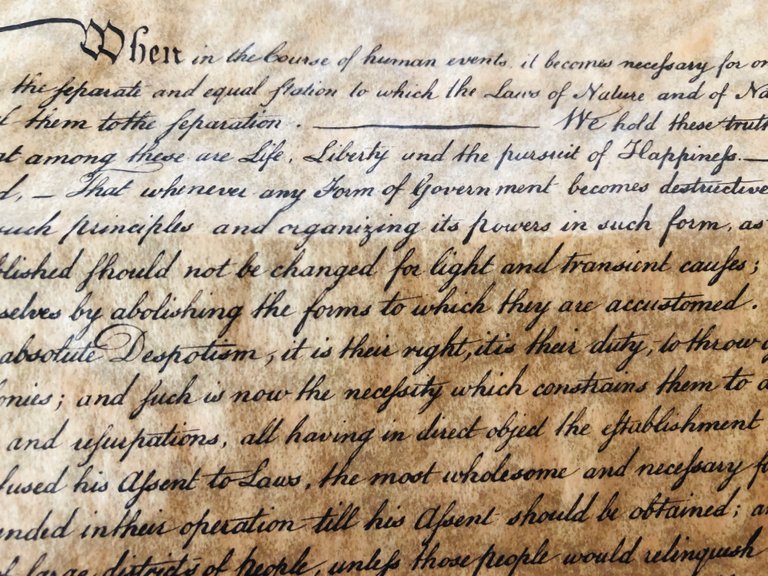 When in the Course of human events, it becomes necessary for on
the separate and equal station to which the Laws of Nature and of Na
them to the separation. ——— We hold these truth
at among these are Life, Liberty and the pursuit of Happiness.—
d, — That whenever any Form of Government becomes destructive
such principles and organizing its powers in such form, as
blished should not be changed for light and transient causes;
selves by abolishing the forms to which they are accustomed.
absolute Despotism, it is their right, it is their duty, to throw o
onies; and such is now the necessity which constrains them to a
and usurpations, all having in direct object the establishment
fused his Assent to Laws, the most wholesome and necessary fo
ended in their operation till his Assent should be obtained; a
of large districts of people, unless those people would relinquish